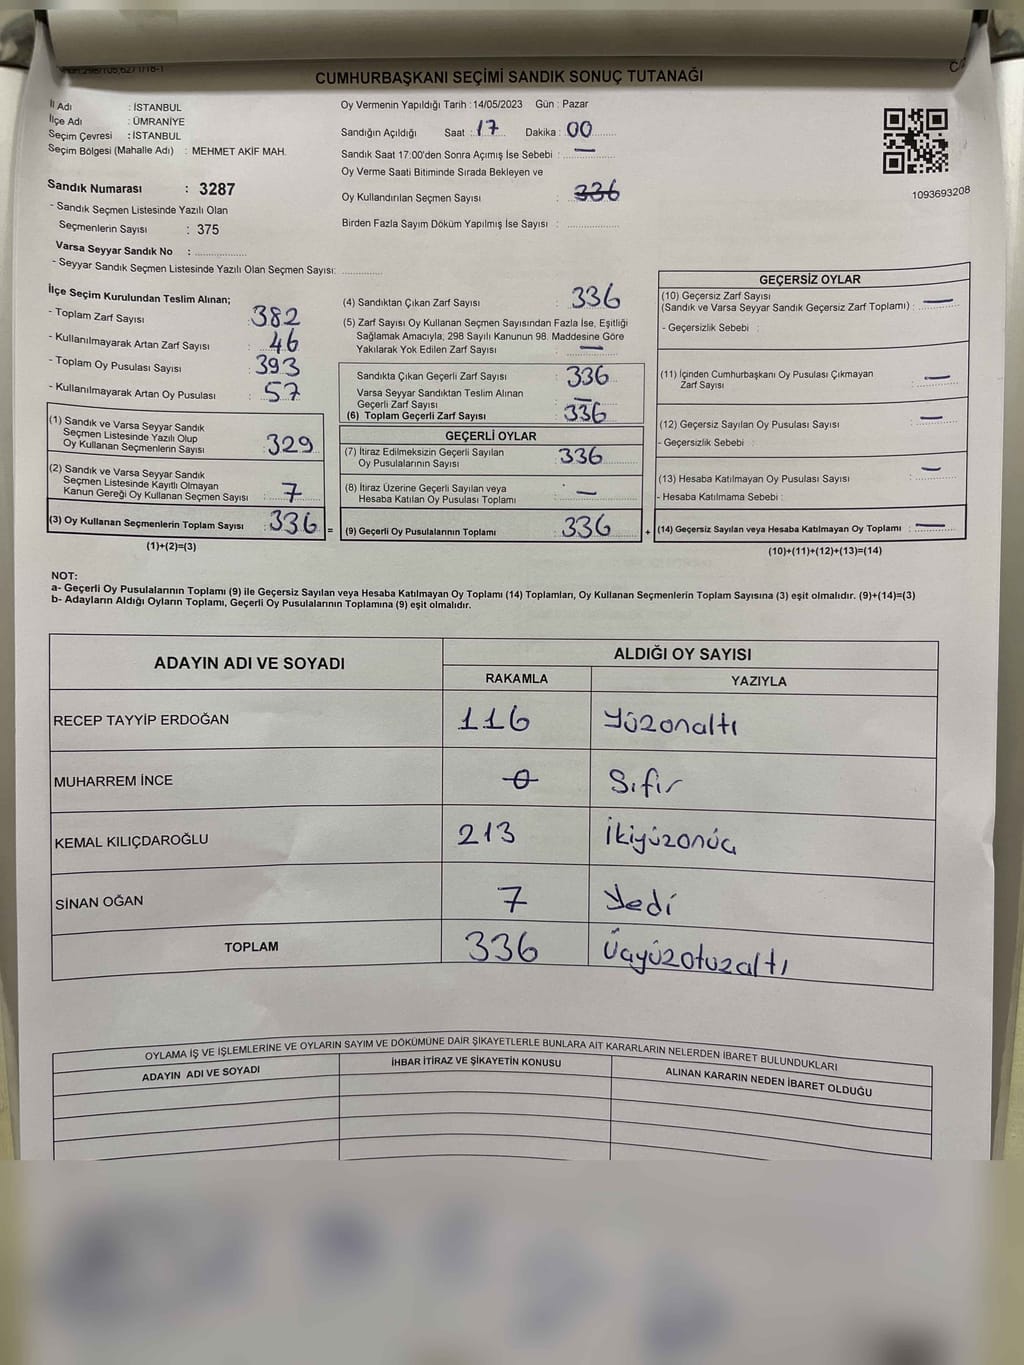 CUMHURBAŞKANI SEÇİMİ SANDIK SONUÇ TUTANAĞI
İl Adı : İSTANBUL
İlçe Adı : ÜMRANİYE
Seçim Çevresi : İSTANBUL
Seçim Bölgesi (Mahalle Adı) : MEHMET AKİF MAH.
Sandık Numarası : 3287
- Sandık Seçmen Listesinde Yazılı Olan
Seçmenlerin Sayısı : 375
Varsa Seyyar Sandık No :
- Seyyar Sandık Seçmen Listesinde Yazılı Olan Seçmen Sayısı:
Oy Vermenin Yapıldığı Tarih : 14/05/2023 Gün : Pazar
Sandığın Açıldığı Saat : 17 Dakika : 00
Sandık Saat 17:00'den Sonra Açımış İse Sebebi : —
Oy Verme Saati Bitiminde Sırada Bekleyen ve
Oy Kullandırılan Seçmen Sayısı : 336
Birden Fazla Sayım Döküm Yapılmış İse Sayısı :
1093693208
İlçe Seçim Kurulundan Teslim Alınan;
- Toplam Zarf Sayısı : 382
- Kullanılmayarak Artan Zarf Sayısı : 46
- Toplam Oy Pusulası Sayısı : 393
- Kullanılmayarak Artan Oy Pusulası : 57
(1) Sandık ve Varsa Seyyar Sandık
Seçmen Listesinde Yazılı Olup
Oy Kullanan Seçmenlerin Sayısı : 329
(2) Sandık ve Varsa Seyyar Sandık
Seçmen Listesinde Kayıtlı Olmayan
Kanun Gereği Oy Kullanan Seçmen Sayısı : 7
(3) Oy Kullanan Seçmenlerin Toplam Sayısı : 336 =
(1)+(2)=(3)
(4) Sandıktan Çıkan Zarf Sayısı : 336
(5) Zarf Sayısı Oy Kullanan Seçmen Sayısından Fazla İse, Eşitliği
Sağlamak Amacıyla; 298 Sayılı Kanunun 98. Maddesine Göre
Yakılarak Yok Edilen Zarf Sayısı : —
Sandıkta Çıkan Geçerli Zarf Sayısı : 336
Varsa Seyyar Sandıktan Teslim Alınan
Geçerli Zarf Sayısı : —
(6) Toplam Geçerli Zarf Sayısı : 336
GEÇERLİ OYLAR
(7) İtiraz Edilmeksizin Geçerli Sayılan
Oy Pusulalarının Sayısı : 336
(8) İtiraz Üzerine Geçerli Sayılan veya
Hesaba Katılan Oy Pusulası Toplamı : —
(9) Geçerli Oy Pusulalarının Toplamı : 336 +
GEÇERSİZ OYLAR
(10) Geçersiz Zarf Sayısı
(Sandık ve Varsa Seyyar Sandık Geçersiz Zarf Toplamı) : —
- Geçersizlik Sebebi :
(11) İçinden Cumhurbaşkanı Oy Pusulası Çıkmayan
Zarf Sayısı : —
(12) Geçersiz Sayılan Oy Pusulası Sayısı : —
- Geçersizlik Sebebi :
(13) Hesaba Katılmayan Oy Pusulası Sayısı : —
- Hesaba Katılmama Sebebi :
(14) Geçersiz Sayılan veya Hesaba Katılmayan Oy Toplamı : —
(10)+(11)+(12)+(13)=(14)
NOT:
a- Geçerli Oy Pusulalarının Toplamı (9) ile Geçersiz Sayılan veya Hesaba Katılmayan Oy Toplamı (14) Toplamları, Oy Kullanan Seçmenlerin Toplam Sayısına (3) eşit olmalıdır. (9)+(14)=(3)
b- Adayların Aldığı Oyların Toplamı, Geçerli Oy Pusulalarının Toplamına (9) eşit olmalıdır.
ADAYIN ADI VE SOYADI ALDIĞI OY SAYISI
RAKAMLA YAZIYLA
RECEP TAYYİP ERDOĞAN 116 Yüzonaltı
MUHARREM İNCE 0 Sıfır
KEMAL KILIÇDAROĞLU 213 İkiyüzonüç
SİNAN OĞAN 7 Yedi
TOPLAM 336 Üçyüzotuzaltı
OYLAMA İŞ VE İŞLEMLERİNE VE OYLARIN SAYIM VE DÖKÜMÜNE DAİR ŞİKAYETLERLE BUNLARA AİT KARARLARIN NELERDEN İBARET BULUNDUKLARI
ADAYIN ADI VE SOYADI İHBAR İTİRAZ VE ŞİKAYETİN KONUSU ALINAN KARARIN NEDEN İBARET OLDUĞU